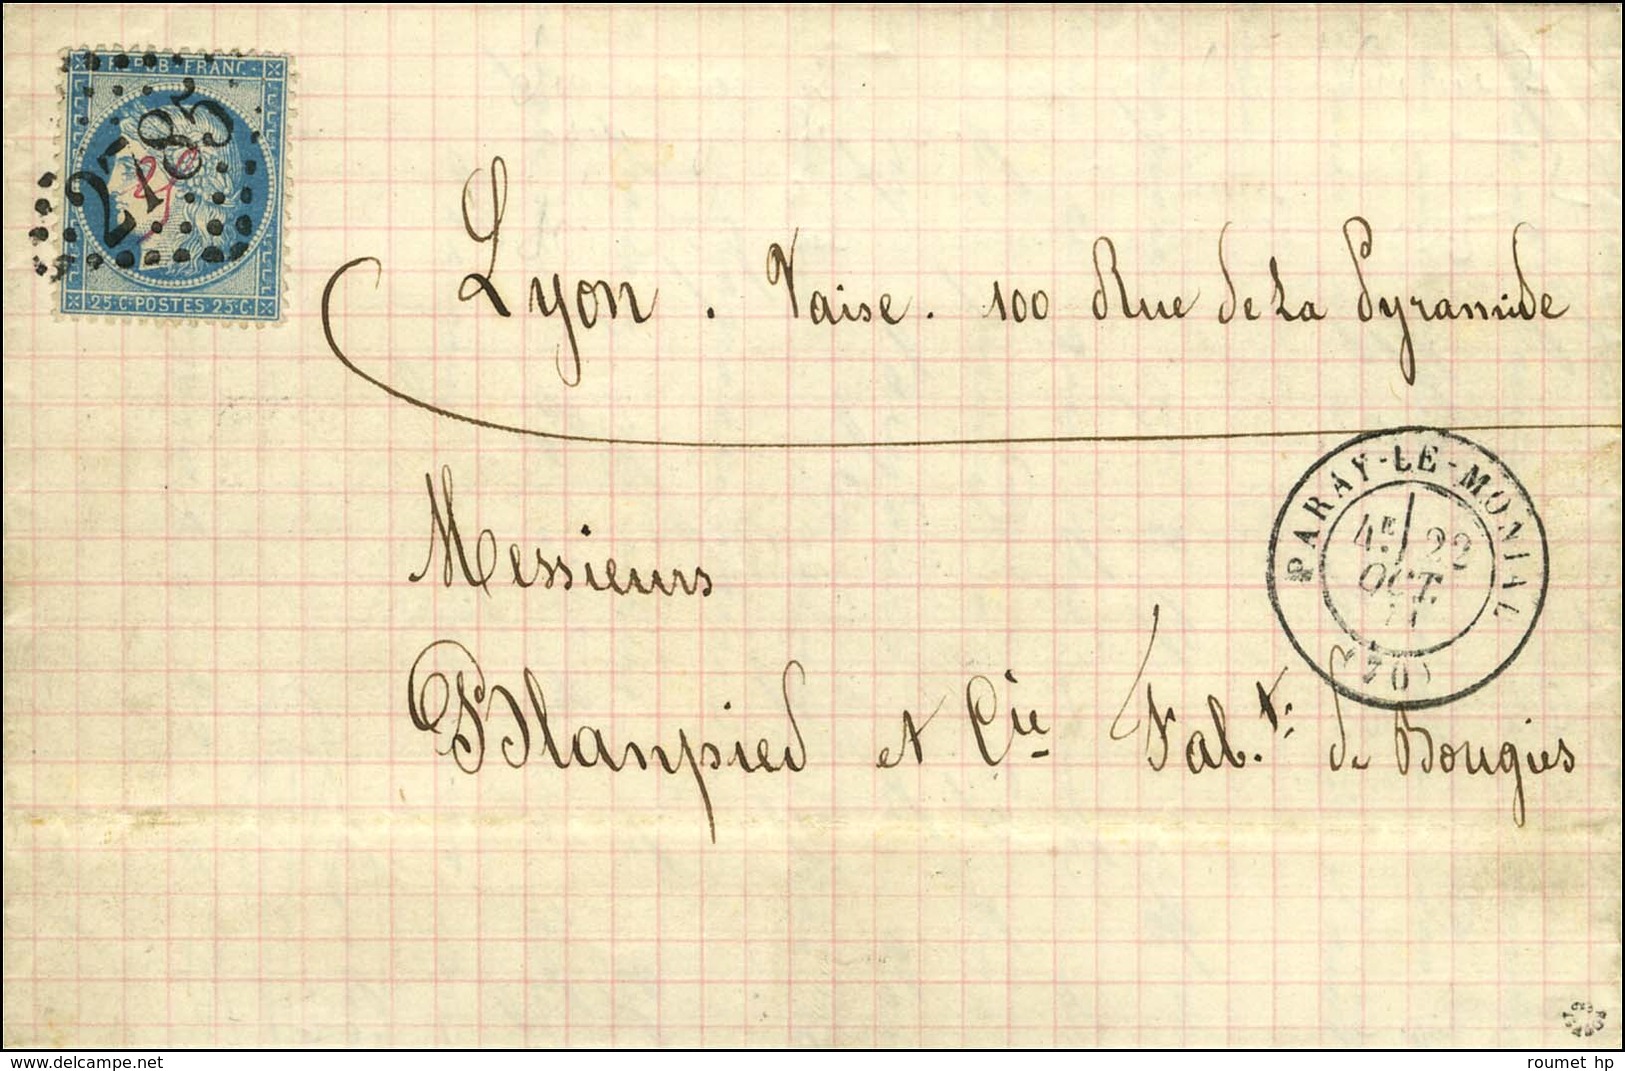 REPUB · FRANC.
2785
25 C · POSTES 25 C
Lyon . Vaise . 100 Rue de La Pyramide
PARAY-LE-MONIAL
4E 22
OCT.
(70)
Messieurs
Blanpied et Cie Fab.t: de Bougies
roumet hp